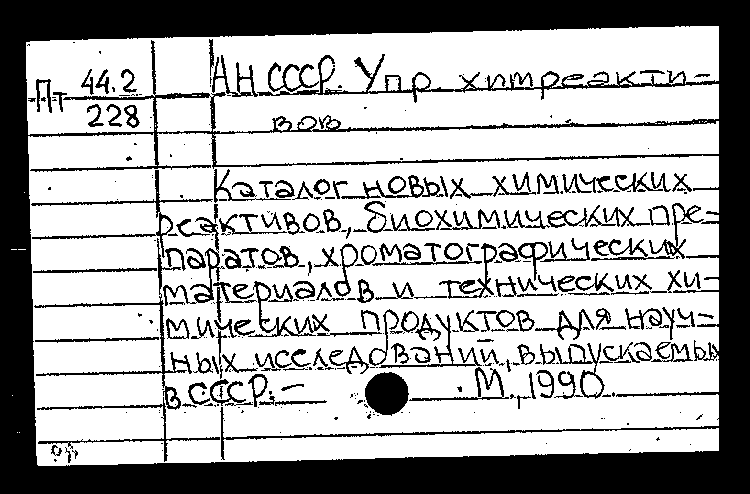 Пт 44.2 АН СССР. Упр. химреакти-
228 вов
Каталог новых химических
реактивов, биохимических пре-
паратов, хроматографических
материалов и технических хи-
мических продуктов для науч-
ных исследований, выпускаемых
в СССР. – . М., 1990.